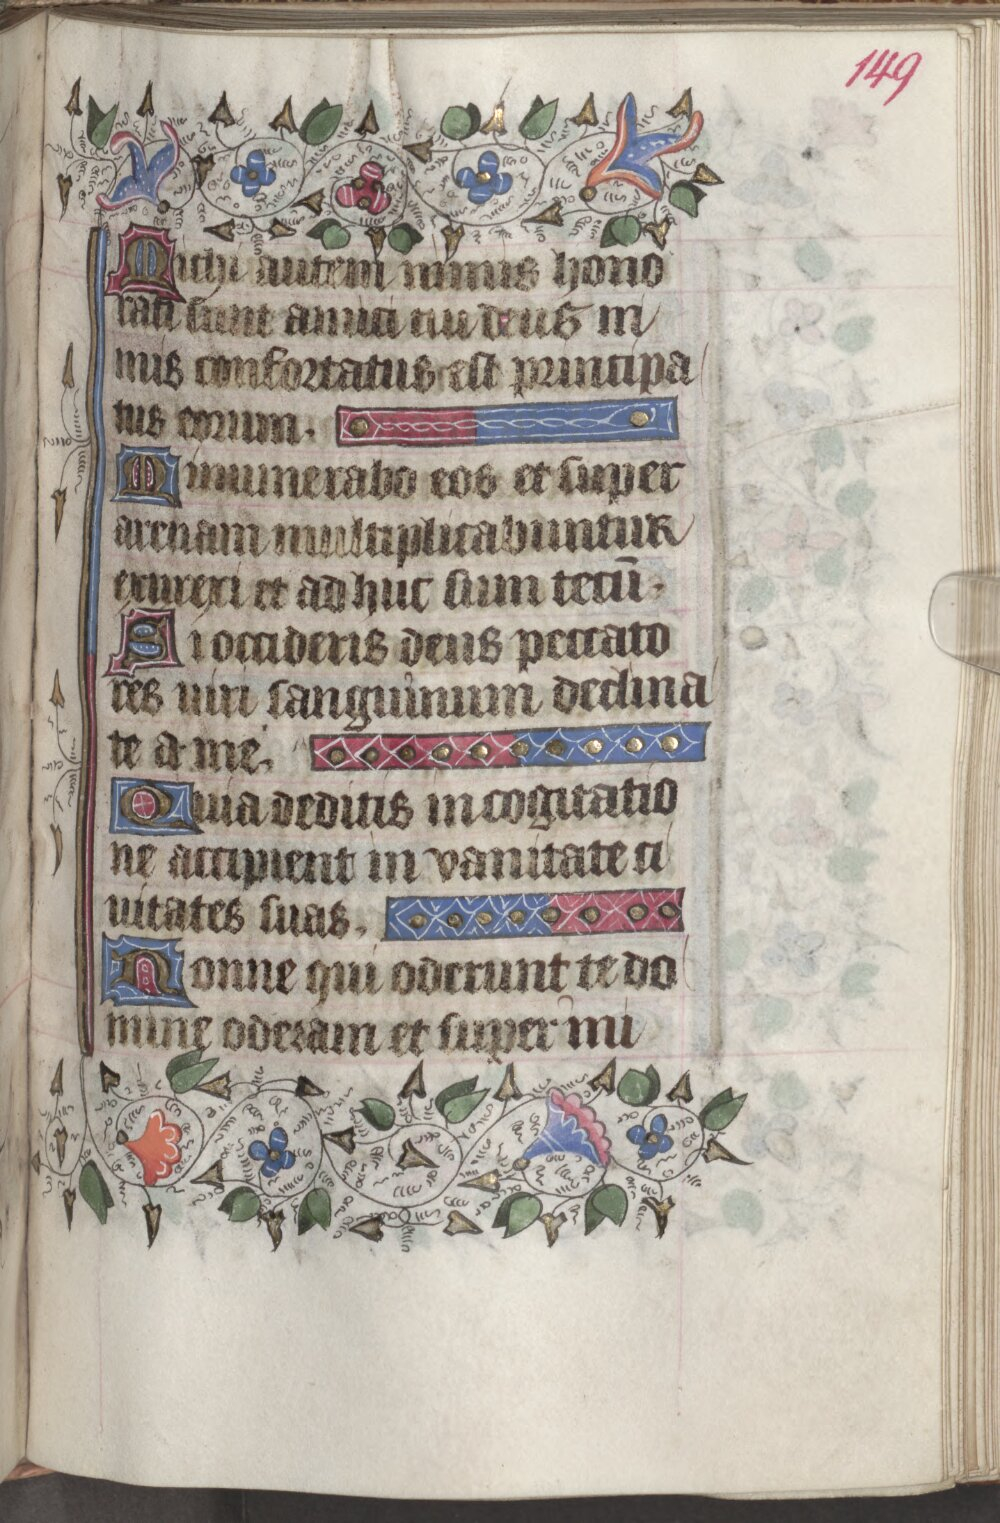 149
Michi autem nimis hono
rati sunt amici tui deus ni
mis confortatus est principa
tus eorum.
Dinumerabo eos et super
arenam multiplicabuntur
exurexi et ad huc sum tecū.
Si occideris deus peccato
res uiri sanguinum declina
te a me.
Quia dediitis in cogitatio
ne accipient in vanitate ci
uitates suas.
Nonne qui oderunt te do
mine oderam et super ini